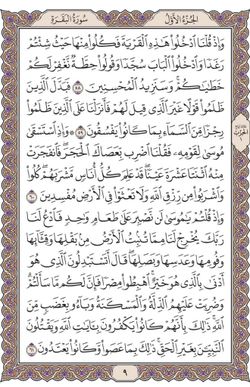 الجزء الأول
سورة البقرة
وَإِذْ قُلْنَا ادْخُلُوا هَٰذِهِ الْقَرْيَةَ فَكُلُوا مِنْهَا حَيْثُ شِئْتُمْ
رَغَدًا وَادْخُلُوا الْبَابَ سُجَّدًا وَقُولُوا حِطَّةٌ نَغْفِرْ لَكُمْ
خَطَايَاكُمْ وَسَنَزِيدُ الْمُحْسِنِينَ ٥٨ فَبَدَّلَ الَّذِينَ
ظَلَمُوا قَوْلًا غَيْرَ الَّذِي قِيلَ لَهُمْ فَأَنْزَلْنَا عَلَى الَّذِينَ ظَلَمُوا
رِجْزًا مِنَ السَّمَاءِ بِمَا كَانُوا يَفْسُقُونَ ٥٩ وَإِذِ اسْتَسْقَىٰ
مُوسَىٰ لِقَوْمِهِ فَقُلْنَا اضْرِبْ بِعَصَاكَ الْحَجَرَ فَانْفَجَرَتْ
مِنْهُ اثْنَتَا عَشْرَةَ عَيْنًا قَدْ عَلِمَ كُلُّ أُنَاسٍ مَشْرَبَهُمْ كُلُوا
وَاشْرَبُوا مِنْ رِزْقِ اللَّهِ وَلَا تَعْثَوْا فِي الْأَرْضِ مُفْسِدِينَ ٦٠
وَإِذْ قُلْتُمْ يَا مُوسَىٰ لَنْ نَصْبِرَ عَلَىٰ طَعَامٍ وَاحِدٍ فَادْعُ لَنَا
رَبَّكَ يُخْرِجْ لَنَا مِمَّا تُنْبِتُ الْأَرْضُ مِنْ بَقْلِهَا وَقِثَّائِهَا
وَفُومِهَا وَعَدَسِهَا وَبَصَلِهَا قَالَ أَتَسْتَبْدِلُونَ الَّذِي هُوَ
أَدْنَىٰ بِالَّذِي هُوَ خَيْرٌ اهْبِطُوا مِصْرًا فَإِنَّ لَكُمْ مَا سَأَلْتُمْ
وَضُرِبَتْ عَلَيْهِمُ الذِّلَّةُ وَالْمَسْكَنَةُ وَبَاءُوا بِغَضَبٍ مِنَ
اللَّهِ ذَٰلِكَ بِأَنَّهُمْ كَانُوا يَكْفُرُونَ بِآيَاتِ اللَّهِ وَيَقْتُلُونَ
النَّبِيِّينَ بِغَيْرِ الْحَقِّ ذَٰلِكَ بِمَا عَصَوْا وَكَانُوا يَعْتَدُونَ ٦١
٩